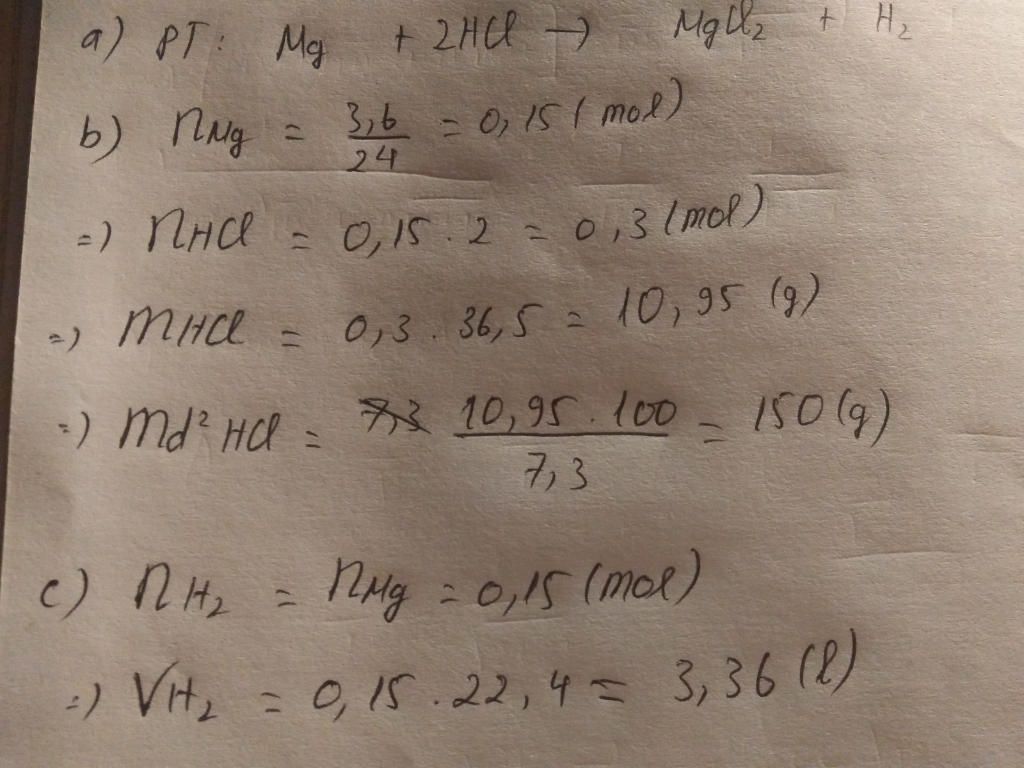 a) PT: Mg + 2HCl → MgCl₂ + H₂
b) nMg = 3,6/24 = 0,15 (mol)
=) nHCl = 0,15 . 2 = 0,3 (mol)
=) mHCl = 0,3 . 36,5 = 10,95 (g)
=) md² HCl = 7,3 10,95 . 100/7,3 = 150 (g)
c) nH₂ = nMg = 0,15 (mol)
=) VH₂ = 0,15 . 22,4 = 3,36 (l)